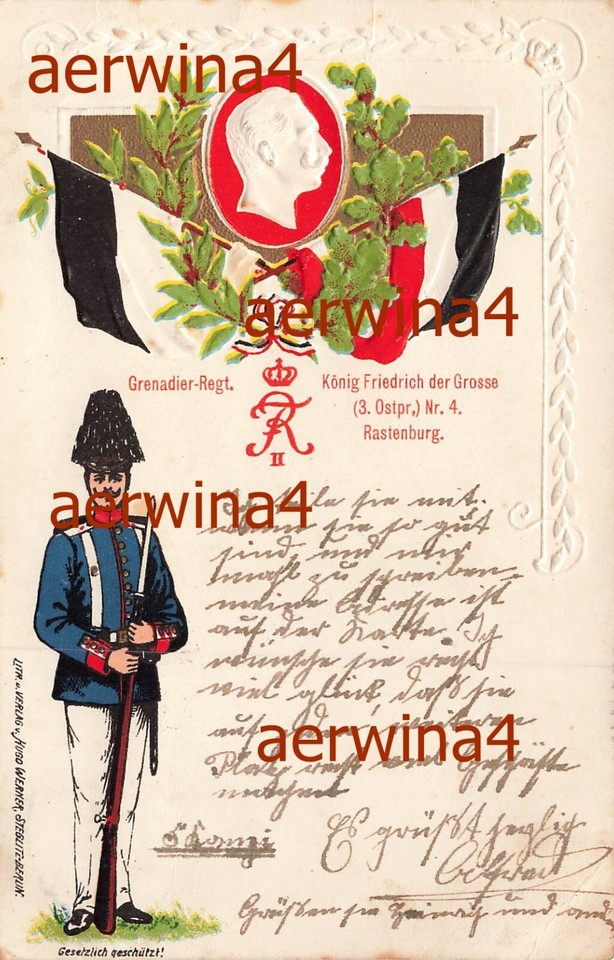 aerwina4
aerwina4
Grenadier-Regt. König Friedrich der Grosse
(3. Ostpr.) Nr. 4.
Rastenburg.
FR
II
aerwina4
sie mit.
sie so gut
sind, und mir
mahl zu schreiben
meine Adresse ist
auf der Karte. Ich
wünsche sie recht
viel glück, daß sie
auf weiteren
aerwina4
Platz recht Geschäfte
machen
Es grüßt
Grüßen sie Heinrich und
LITH. u. VERLAG v. HUGO WERNER, STEGLITZ-BERLIN.
Gesetzlich geschützt!